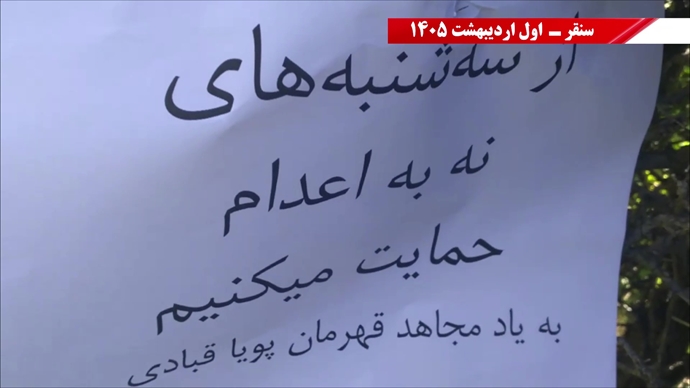 سنقر - اول اردیبهشت ۱۴۰۵
از سه‌شنبه‌های
نه به اعدام
حمایت میکنیم
به یاد مجاهد قهرمان پویا قبادی